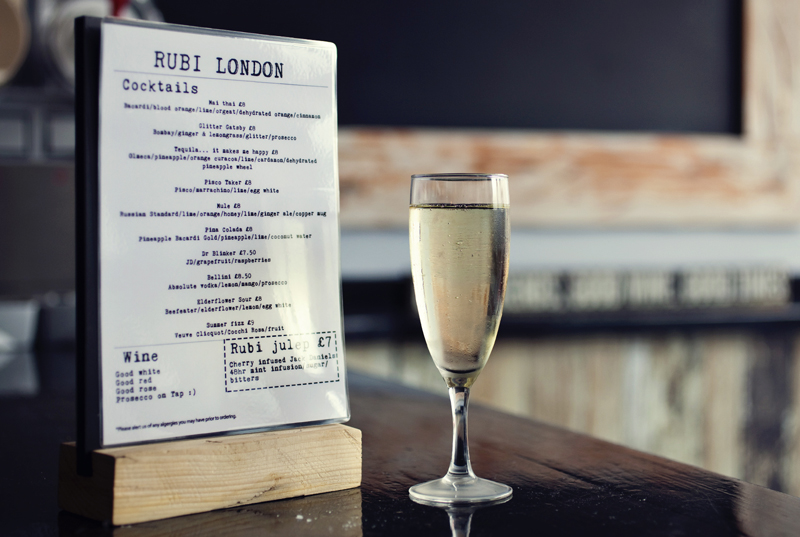 RUBI LONDON
Cocktails
Mai thai £8
Bacardi/blood orange/lime/orgeat/dehydrated orange/cinnamon
Glitter Gatsby £8
Bombay/ginger & lemongrass/glitter/prosecco
Tequila... it makes me happy £8
Olmeca/pineapple/orange curacos/lime/cardamon/dehydrated
pineapple wheel
Pisco Taker £8
Pisco/marrachino/lime/egg white
Mule £8
Russian Standard/lime/orange/honey/lime/ginger ale/copper mug
Pina Colada £8
Pineapple Bacardi Gold/pineapple/lime/coconut water
Dr Blinker £7.50
JD/grapefruit/raspberries
Bellini £8.50
Absolute vodka/lemon/mango/prosecco
Elderflower Sour £8
Beefeater/elderflower/lemon/egg white
Summer fizz £9
Veuve Clicquot/Cocchi Rosa/fruit
Wine
Good white
Good red
Good rose
Prosecco on Tap :)
Rubi julep £7
Cherry infused Jack Daniels
48hr mint infusion/sugar/
bitters
*Please alert us of any algergies you may have prior to ordering.